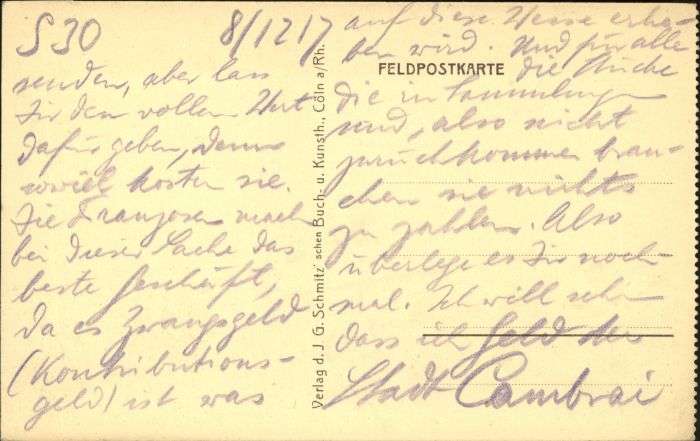 S 30 8/12 17
senden, aber lass
Dir den vollen Wert
dafür geben, denn
soviel kosten sie.
Die Franzosen machen
bei dieser Sache das
beste Geschäft,
da es Zwangsgeld
(Kontributions-
geld) ist was
Verlag d. J. G. Schmitz'schen Buch- u. Kunsth., Cöln a/Rh.
auf diese Weise erho-
ben wird. Und für alle
FELDPOSTKARTE
die Stücke
die in Sammlungen
sind, also nicht
zurückkommen brau-
chen sie nichts
zu zahlen. Also
überlege es Dir noch-
mal. Ich will sehen
dass ich Geld der
Stadt Cambrai